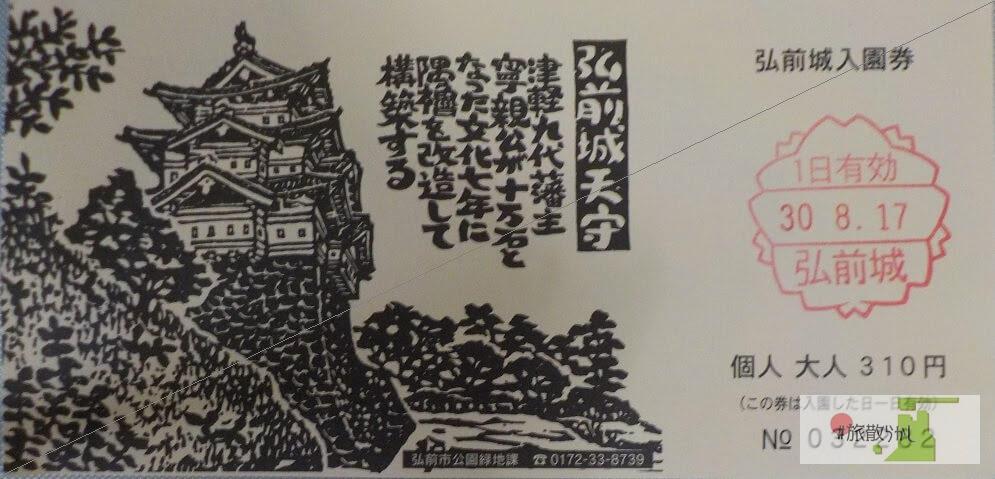 弘前城天守
津軽九代藩主
寧親公が十万石と
なった文化七年に
隅櫓を改造して
構築する
弘前市公園緑地課 ☎0172-33-8739
弘前城入園券
1日有効
30 8.17
弘前城
個人 大人 310円
(この券は入園した日一日有効)
№
#旅散ひかり